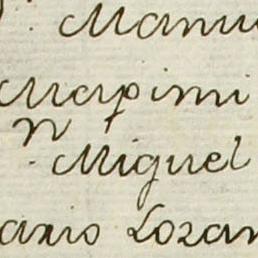 Manu
Mapimi
n
Miguel
axio Lozan